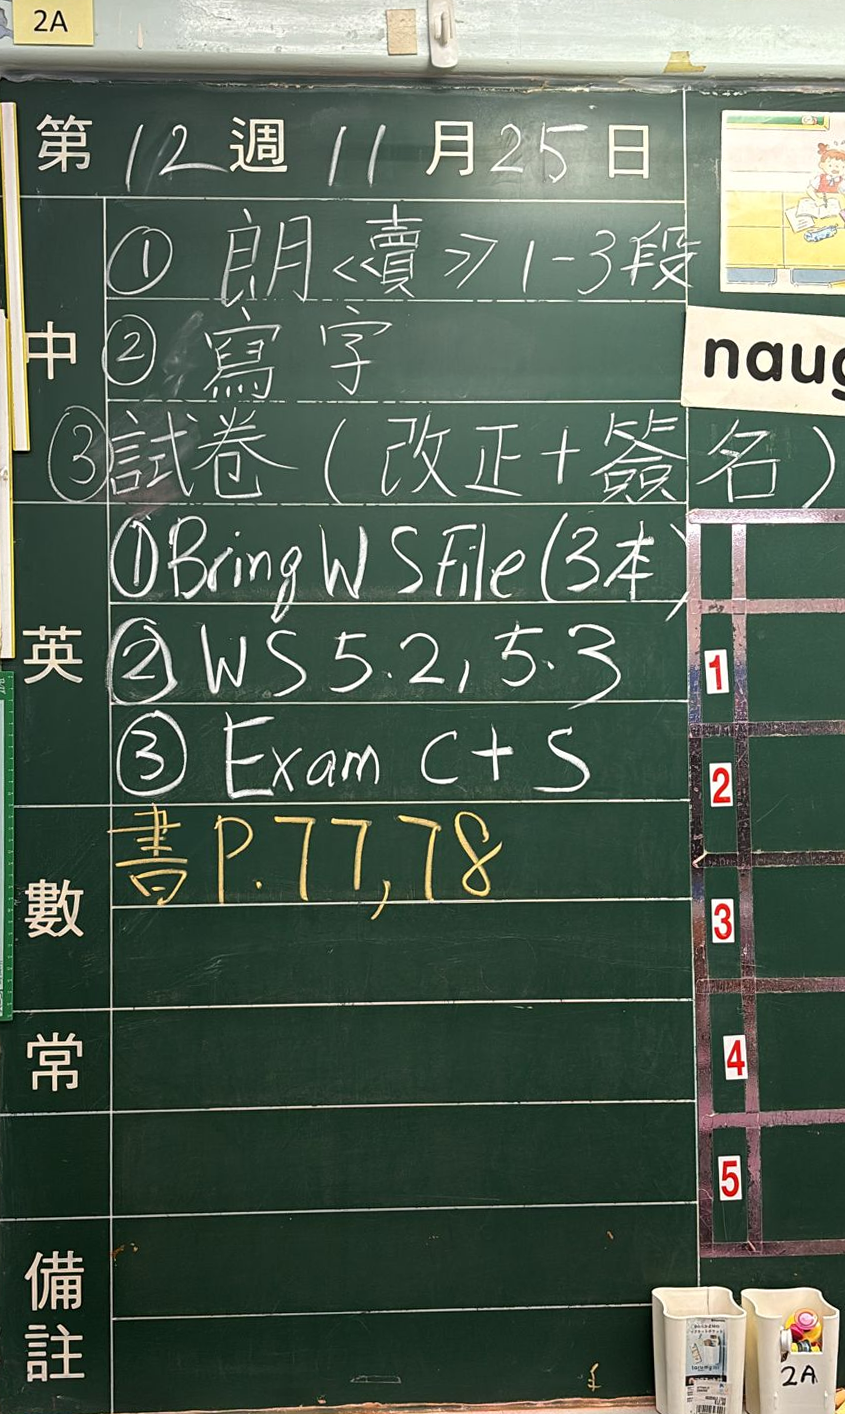 2A
第12週11月25日
中
① 朗《賣》1-3段
② 寫字
③試卷(改正+簽名)
naug
英
①Bring WS File(3本)
② WS 5.2, 5.3
③ Exam C+S
數
書 P.77, 78
常
備註
1
2
3
4
5
2A